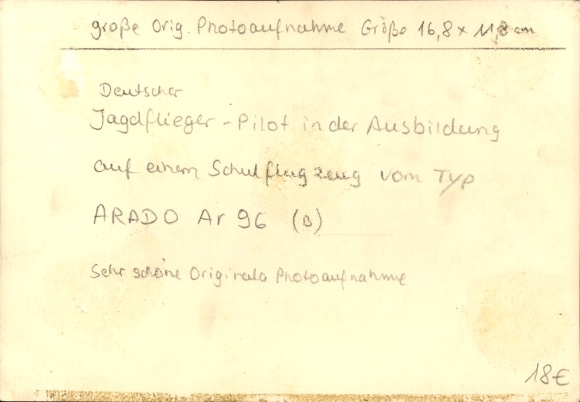 große Orig. Photoaufnahme Größe 16,8 x 11,8 cm
Deutscher
Jagdflieger - Pilot in der Ausbildung
auf einem Schulflugzeug vom Typ
ARADO Ar 96 (B)
Sehr schöne Originale Photoaufnahme
18€